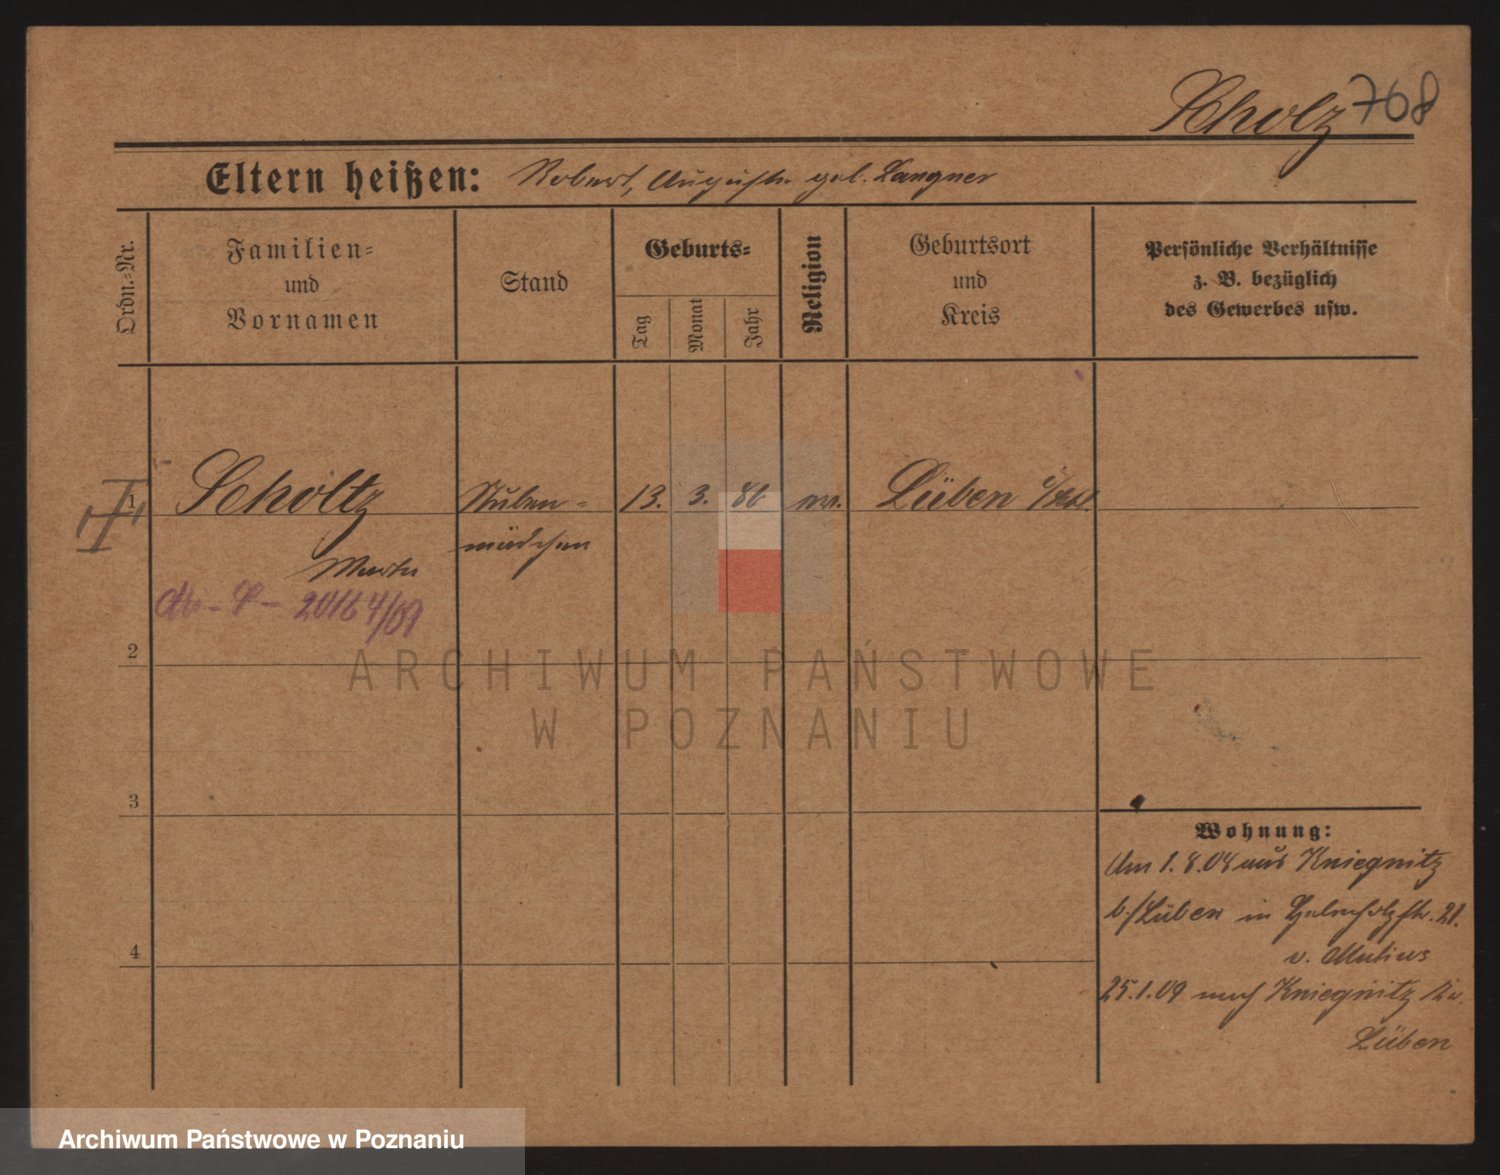 Scholz 768
Eltern heißen: Robert, Auguste geb. Langner
Ordn.-Nr.
Familien-
und
Vornamen
Stand
Geburts-
Tag
Monat
Jahr
Religion
Geburtsort
und
Kreis
Persönliche Verhältnisse
z. B. bezüglich
des Gewerbes usw.
1 Scholtz Stuben- 13. 3. 86 ev. Lüben i/Schl.
mädchen
Martha
2
ARCHIWUM PAŃSTWOWE
W POZNANIU
3
Wohnung:
Am 1.8.08 aus Kniegnitz
b/Lüben in
v. Mutius
4
25.1.09 nach Kniegnitz
Lüben
Archiwum Państwowe w Poznaniu